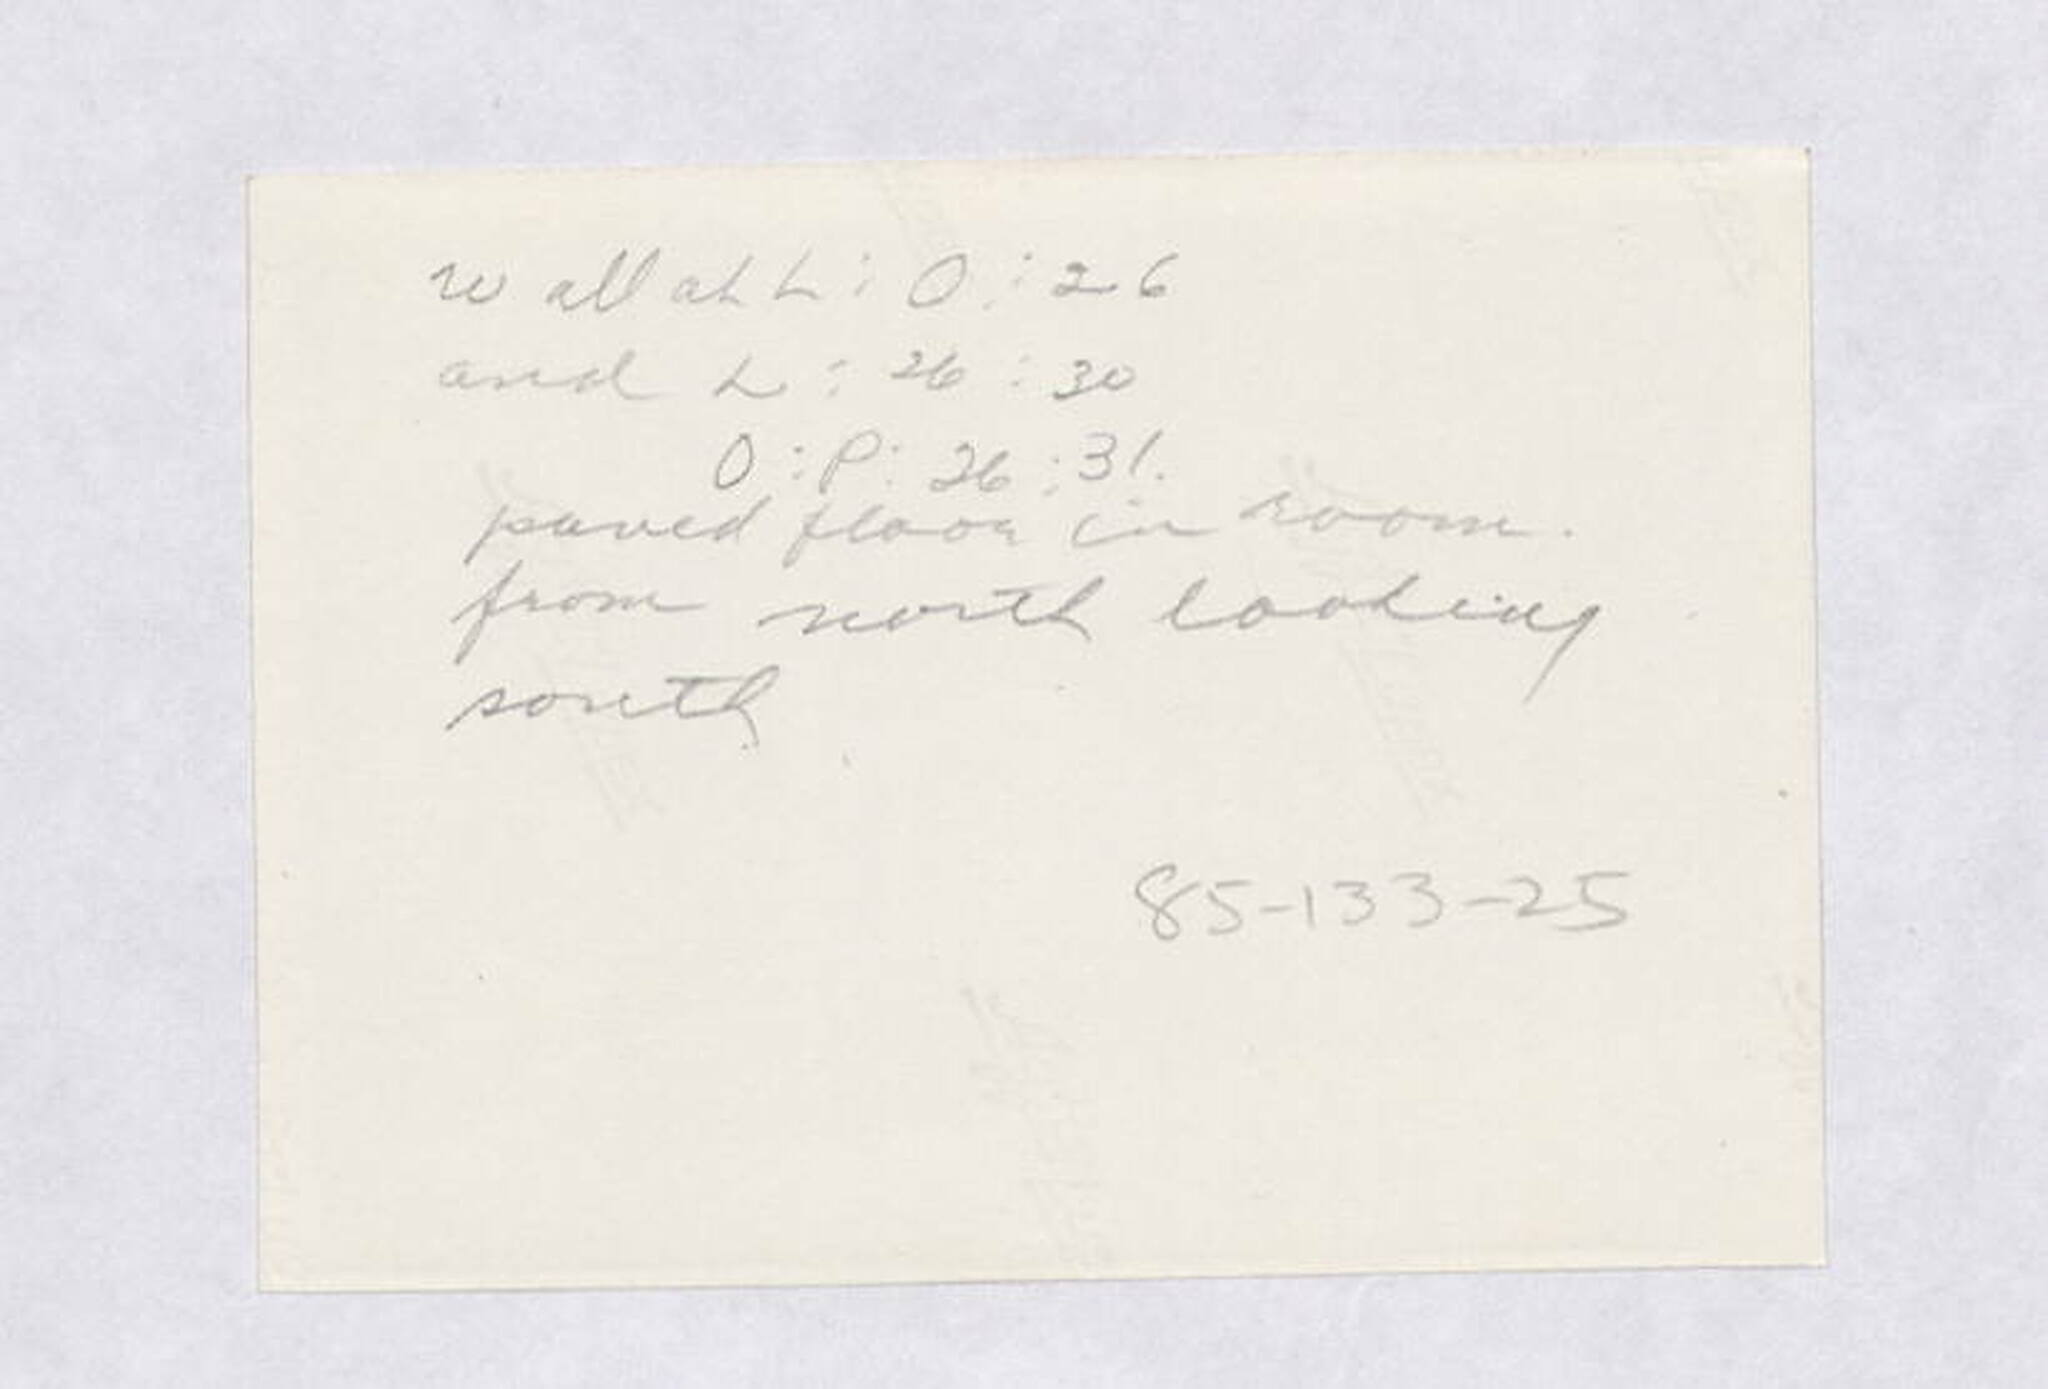 wall at L: O: 26
and L: 26: 30
O: P: 26: 31.
paved floor in room.
from north looking
south
85-133-25